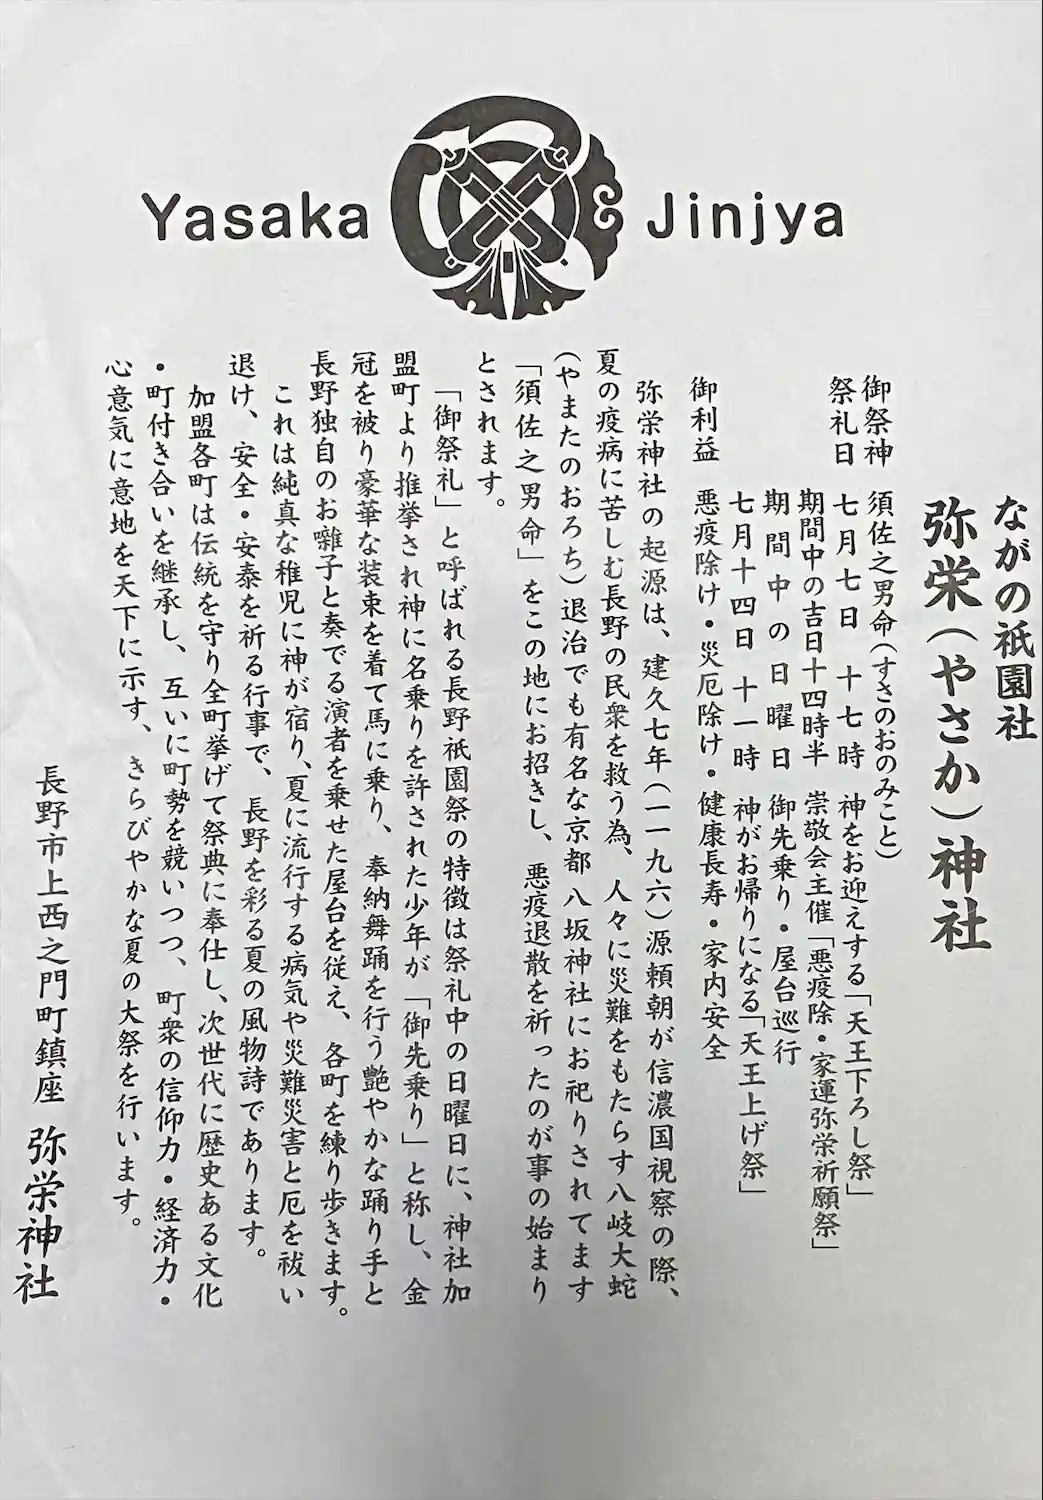 Yasaka Jinjya
ながの祇園社
弥栄(やさか)神社
御祭神 須佐之男命(すさのおのみこと)
祭礼日 七月七日 十七時 神をお迎えする「天王下ろし祭」
期間中の吉日十四時半 崇敬会主催「悪疫除・家運弥栄祈願祭」
期間中の日曜日 御先乗り・屋台巡行
七月十四日 十一時 神がお帰りになる「天王上げ祭」
御利益 悪疫除け・災厄除け・健康長寿・家内安全
弥栄神社の起源は、建久七年(一一九六)源頼朝が信濃国視察の際、
夏の疫病に苦しむ長野の民衆を救う為、人々に災難をもたらす八岐大蛇
(やまたのおろち)退治でも有名な京都八坂神社にお祀りされてます
「須佐之男命」をこの地にお招きし、悪疫退散を祈ったのが事の始まり
とされます。
「御祭礼」と呼ばれる長野祇園祭の特徴は祭礼中の日曜日に、神社加
盟町より推挙され神に名乗りを許された少年が「御先乗り」と称し、金
冠を被り豪華な装束を着て馬に乗り、奉納舞踊を行う艶やかな踊り手と
長野独自のお囃子と奏でる演者を乗せた屋台を従え、各町を練り歩きます。
これは純真な稚児に神が宿り、夏に流行する病気や災難災害と厄を祓い
退け、安全・安泰を祈る行事で、長野を彩る夏の風物詩であります。
加盟各町は伝統を守り全町挙げて祭典に奉仕し、次世代に歴史ある文化
・町付き合いを継承し、互いに町勢を競いつつ、町衆の信仰力・経済力・
心意気に意地を天下に示す、きらびやかな夏の大祭を行います。
長野市上西之門町鎮座 弥栄神社